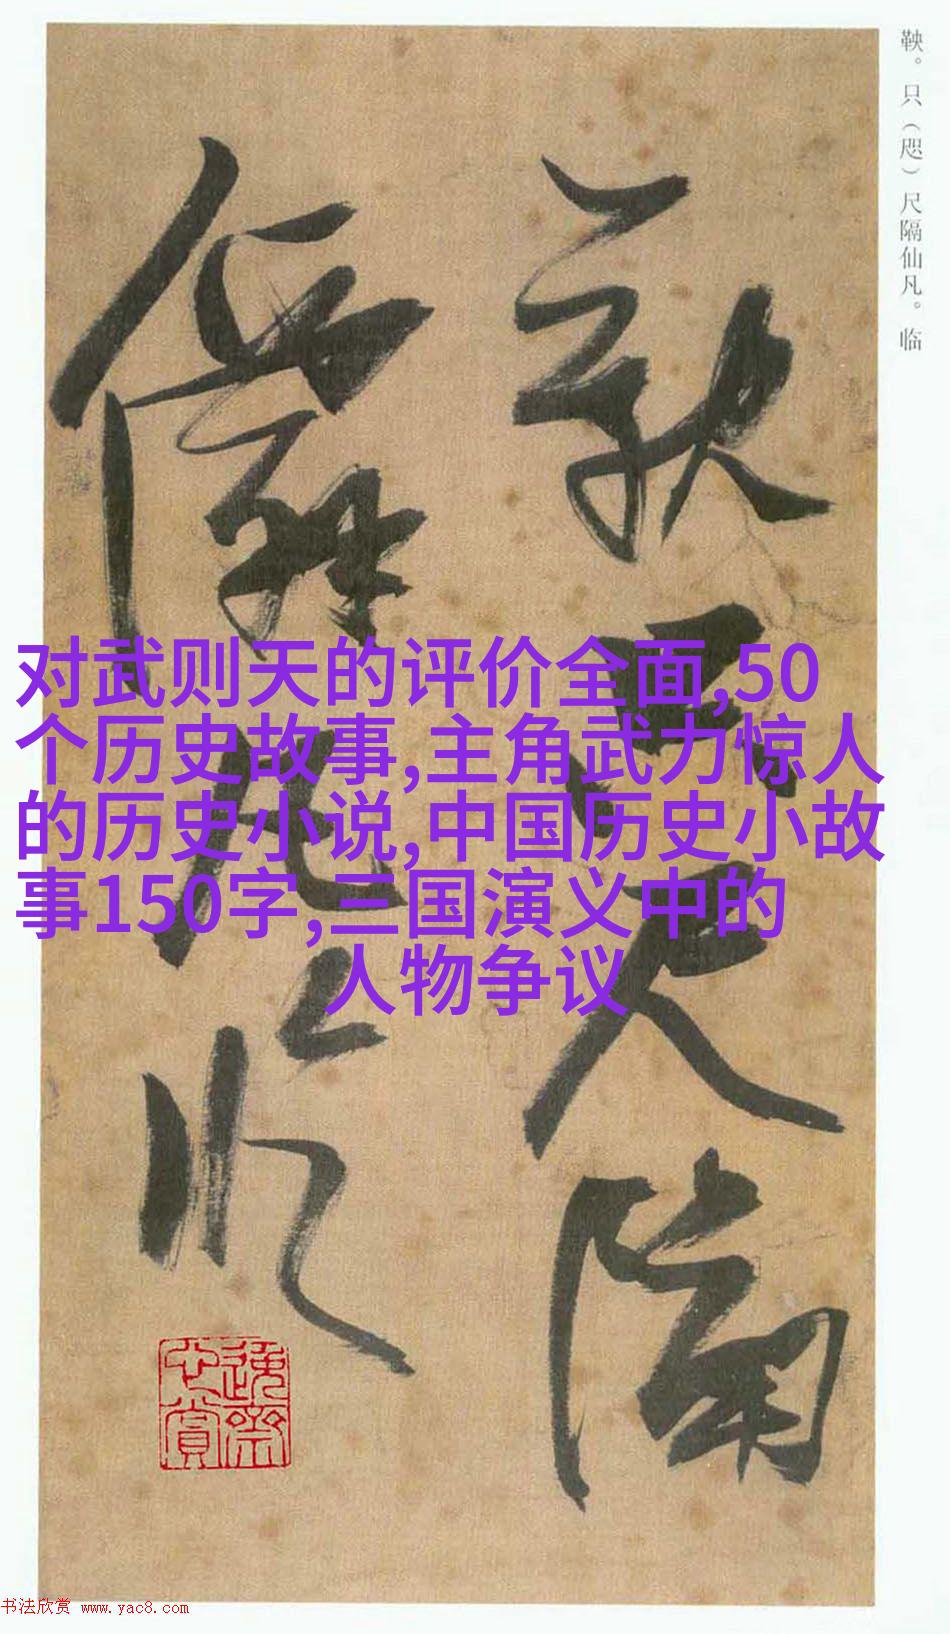 鞅。只（咫）尺隔仙凡。临
鞅只尺隔
仙凡临
对武则天的评价全面,50
个历史故事,主角武力惊人
的历史小说,中国历史小故
事150字,三国演义中的
人物争议
书法欣赏 www.yac8.com